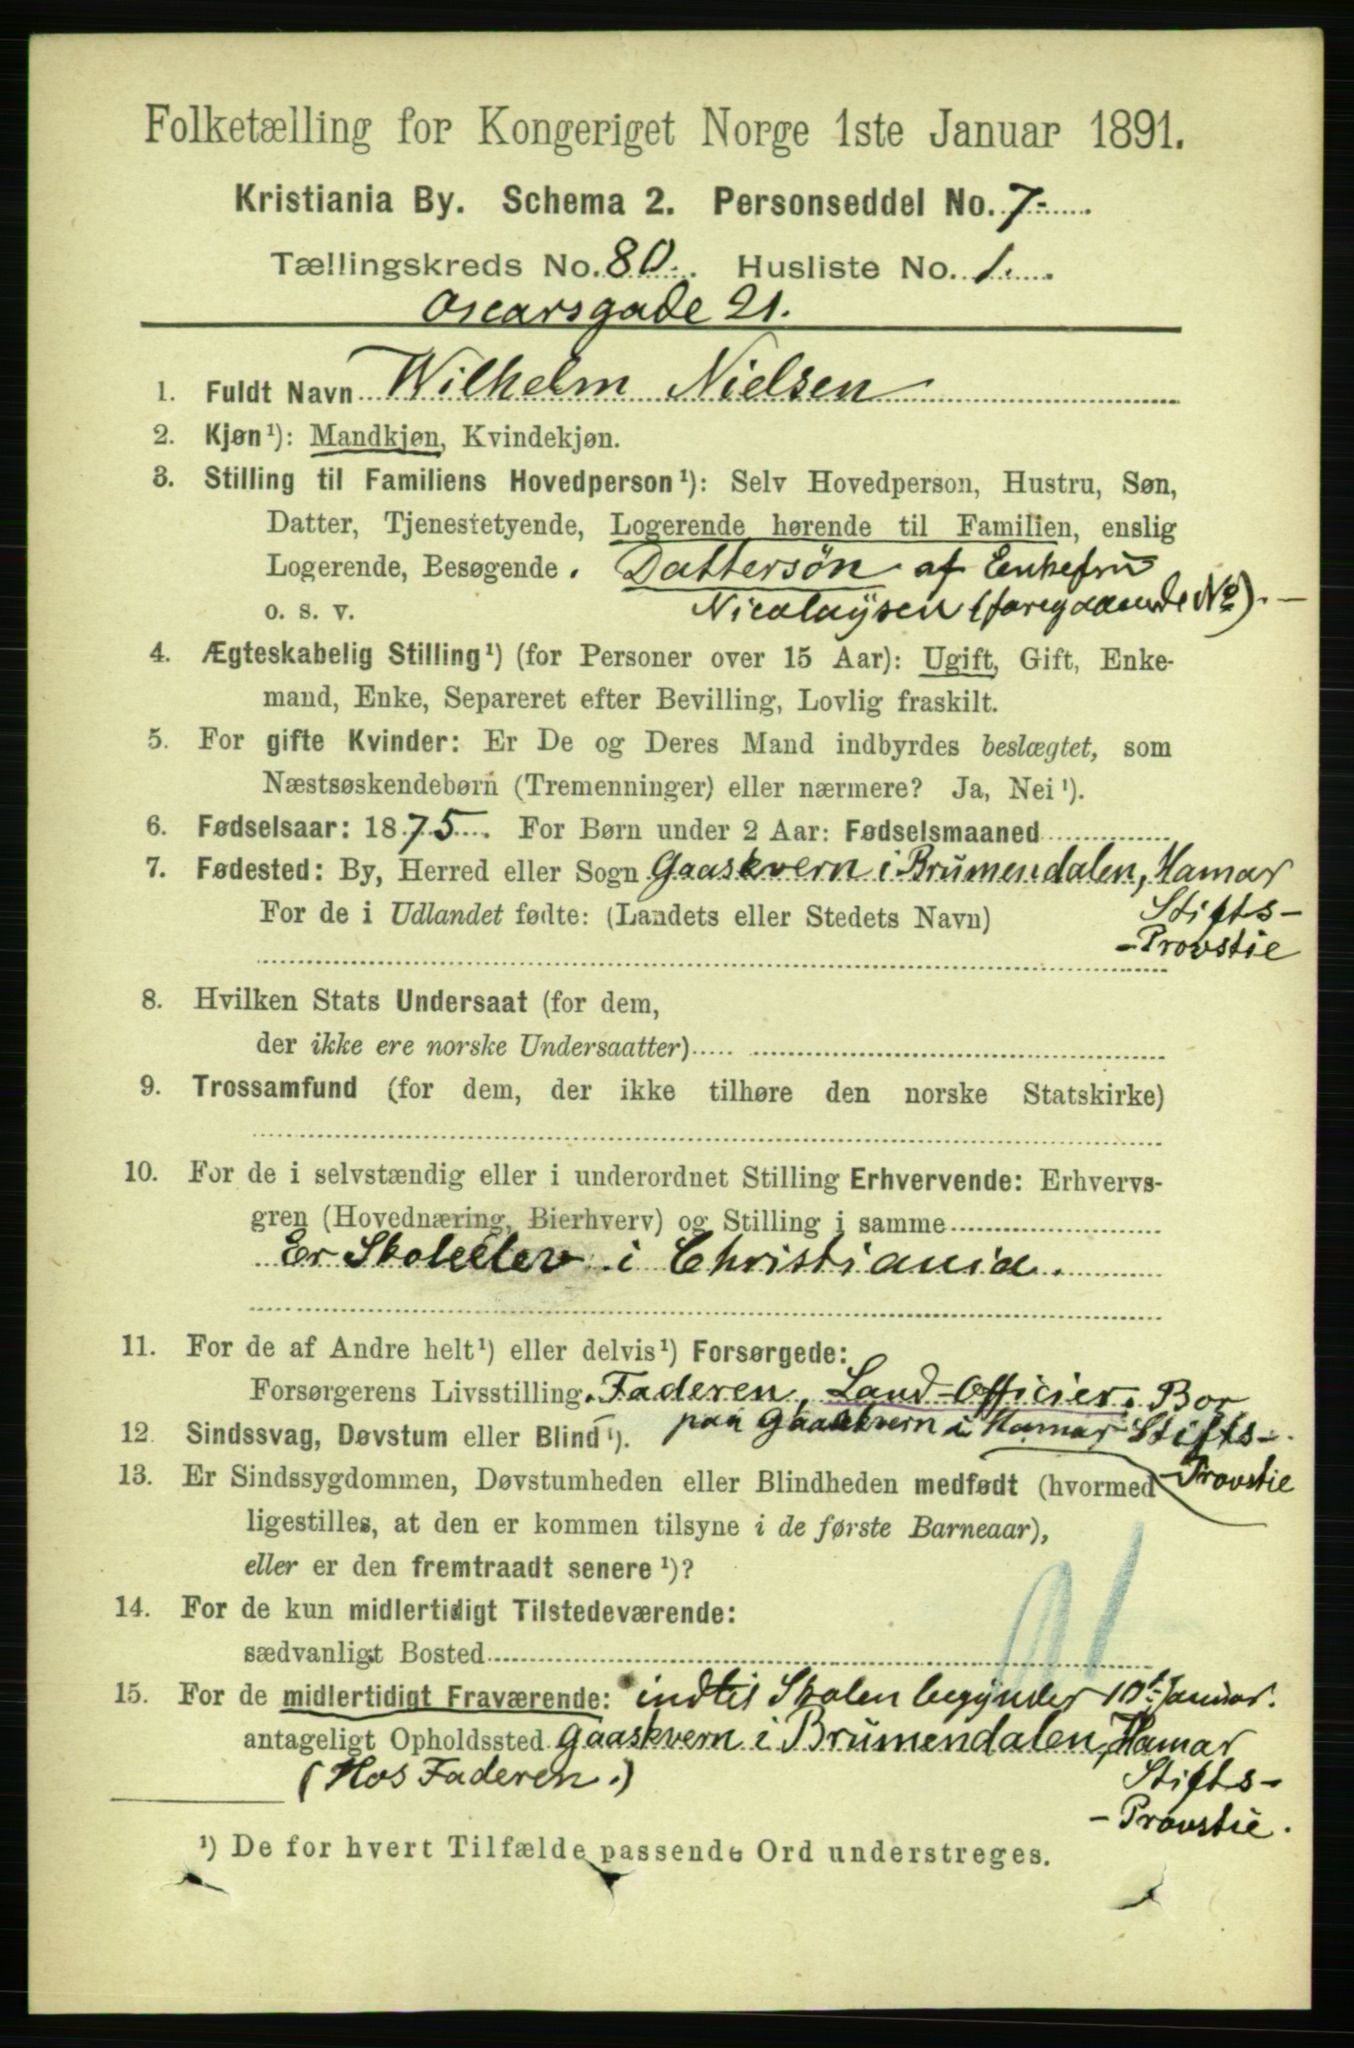 Folketælling for Kongeriget Norge 1ste Januar 1891.
Kristiania By. Schema 2. Personseddel No. 7-
Tællingskreds No. 80. Husliste No. 1.
Oscarsgade 21.
1. Fuldt Navn Wilhelm Nielsen
2. Kjøn¹): Mandkjøn, Kvindekjøn.
3. Stilling til Familiens Hovedperson¹): Selv Hovedperson, Hustru, Søn,
Datter, Tjenestetyende, Logerende hørende til Familien, enslig
Logerende, Besøgende. Dattersøn af Enkefru
o. s. v. Nicolaysen (foregaaende No). —
4. Ægteskabelig Stilling¹) (for Personer over 15 Aar): Ugift, Gift, Enke-
mand, Enke, Separeret efter Bevilling, Lovlig fraskilt.
5. For gifte Kvinder: Er De og Deres Mand indbyrdes beslægtet, som
Næstsøskendebørn (Tremenninger) eller nærmere? Ja, Nei¹).
6. Fødselsaar: 1875. For Børn under 2 Aar: Fødselsmaaned
7. Fødested: By, Herred eller Sogn Gaaskvern i Brumendalen, Hamar
For de i Udlandet fødte: (Landets eller Stedets Navn) Stifts-
-Provstie
8. Hvilken Stats Undersaat (for dem,
der ikke ere norske Undersaatter)
9. Trossamfund (for dem, der ikke tilhøre den norske Statskirke)
10. For de i selvstændig eller i underordnet Stilling Erhvervende: Erhvervs-
gren (Hovednæring, Bierhverv) og Stilling i samme
Er Skoleelev i Christiania.
11. For de af Andre helt¹) eller delvis¹) Forsørgede:
Forsørgerens Livsstilling. Faderen, Land-Officier. Bor
12. Sindssvag, Døvstum eller Blind¹). paa Gaaskvern i Hamar Stifts-
13. Er Sindssygdommen, Døvstumheden eller Blindheden medfødt (hvormed -Provstie
ligestilles, at den er kommen tilsyne i de første Barneaar),
eller er den fremtraadt senere¹)?
14. For de kun midlertidigt Tilstedeværende:
sædvanligt Bosted
91
15. For de midlertidigt Fraværende: indtil Skolen begynder 10de Januar.
antageligt Opholdssted Gaaskvern i Brumendalen, Hamar
(Hos Faderen.) Stifts-
-Provstie.
¹) De for hvert Tilfælde passende Ord understreges.